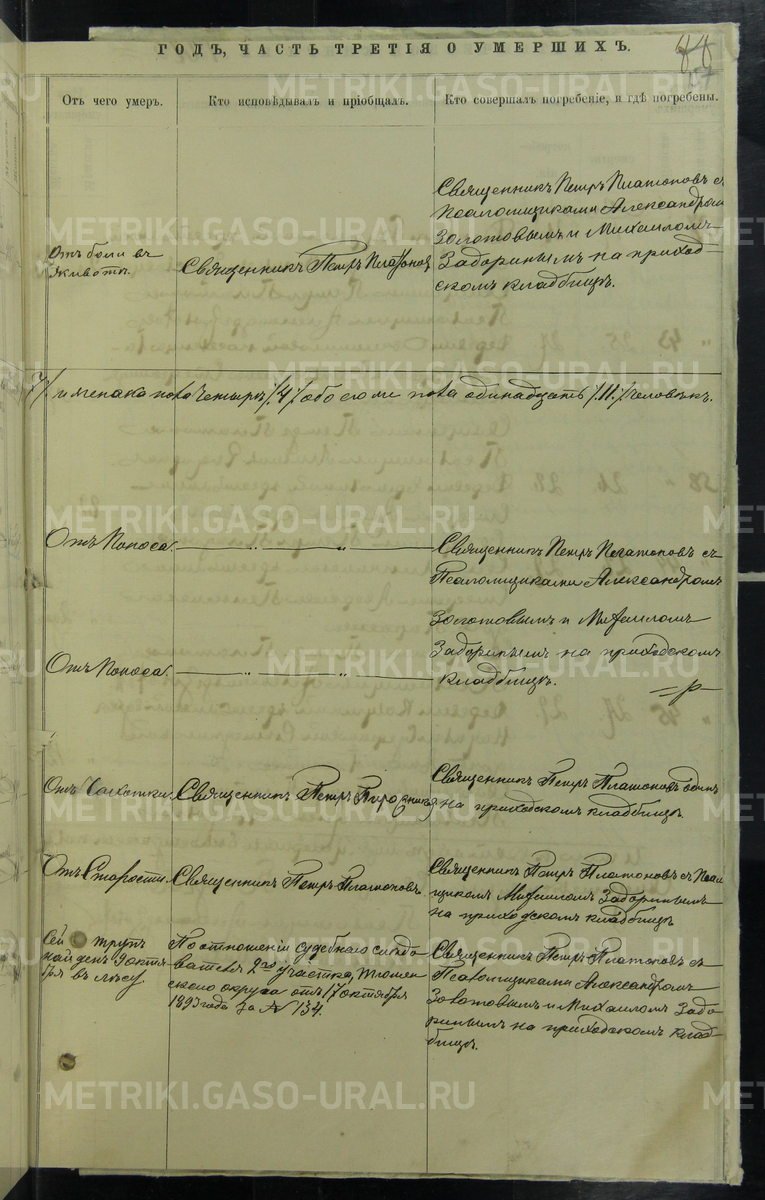 ГОДЪ, ЧАСТЬ ТРЕТІЯ О УМЕРШИХЪ.
Отъ чего умеръ.
Кто исповѣдывалъ и пріобщалъ.
Кто совершалъ погребеніе, и гдѣ погребены.
Отъ боли въ
животѣ.
Священникъ Петръ Платоновъ
Священникъ Петръ Платоновъ съ
Псаломщиками Александромъ
Золотовымъ и Михаиломъ
Задоринымъ на приход-
скомъ кладбищѣ.
7/ и женска пола Четыре /4/ обоего пола одинадцать /11/ человѣкъ.
Отъ Поноса.
Священникъ Петръ Платоновъ съ
Псаломщиками Александромъ
Золотовымъ и Михаиломъ
Отъ Поноса.
Задоринымъ на приходскомъ
кладбищѣ.
Отъ Чахотки.
Священникъ Петръ
Священникъ Петръ Платоновъ одинъ
на приходскомъ кладбищѣ.
Отъ Старости.
Священникъ Петръ Платоновъ
Священникъ Петръ Платоновъ съ Псалом
щикомъ Михаиломъ Задоринымъ
на приходскомъ кладбищѣ
Сей трупъ
найденъ 9 октя
бря въ лѣсу
По отношенію судебнаго слѣдо
вателя 2го участка, Тюмен
скаго округа отъ 17 октября
1893 года за № 134.
Священникъ Петръ Платоновъ съ
Псаломщиками Александромъ
Золотовымъ и Михаиломъ Задо
ринымъ на приходскомъ клад
бищѣ.
METRIKI.GASO-URAL.RU
METRIKI.GASO-URAL.RU
METRIKI.GASO-URAL.RU
METRIKI.GASO-URAL.RU
METRIKI.GASO-URAL.RU
METRIKI.GASO-URAL.RU
METRIKI.GASO-URAL.RU
METRIKI.GASO-URAL.RU